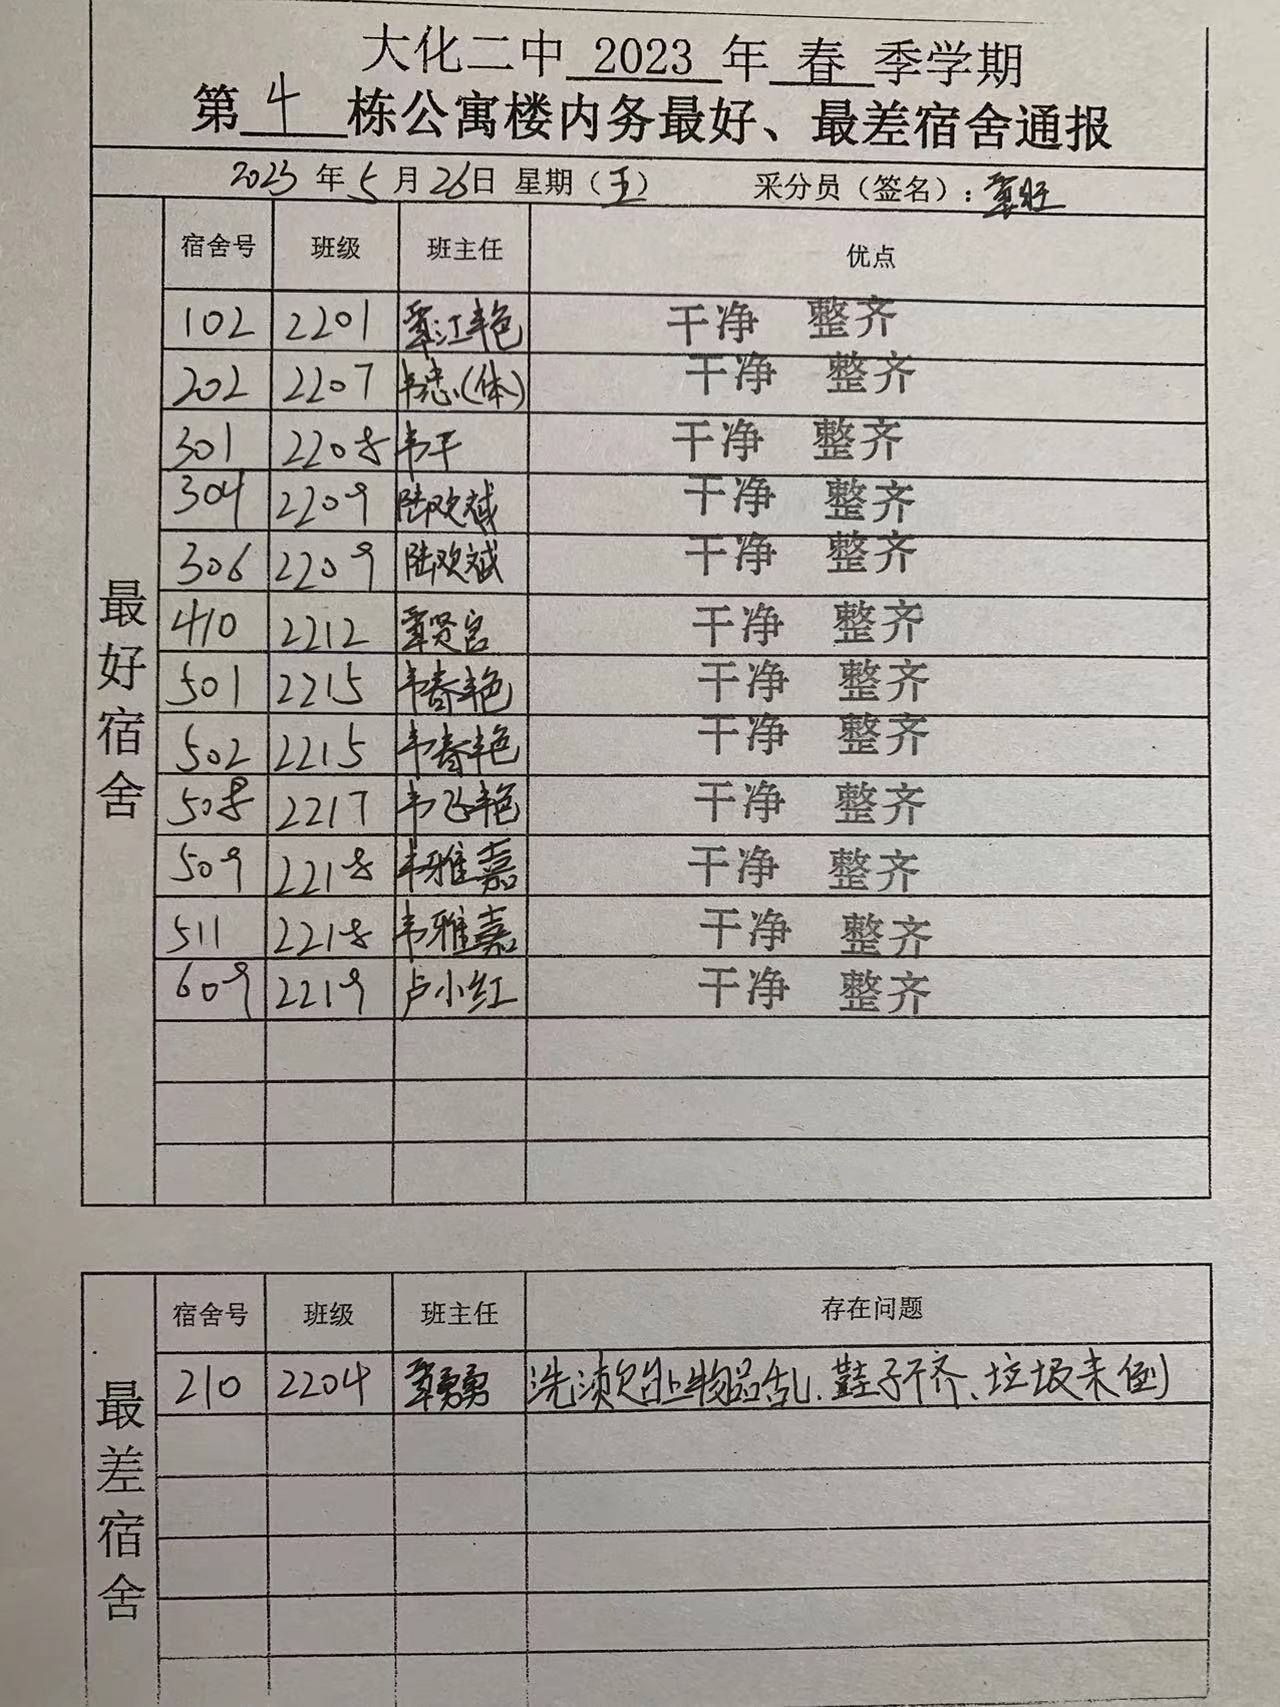 大化二中 2023 年 春 季学期
第 4 栋公寓楼内务最好、最差宿舍通报
2023 年 5 月 26日 星期（五） 采分员（签名）：覃旺
最好宿舍
宿舍号 班级 班主任 优点
102 2201 覃江艳 干净 整齐
202 2207 韦忠(体) 干净 整齐
301 2208 韦干 干净 整齐
304 2209 陆欢斌 干净 整齐
306 2209 陆欢斌 干净 整齐
410 2212 覃贤宫 干净 整齐
501 2215 韦春艳 干净 整齐
502 2215 韦春艳 干净 整齐
508 2217 韦飞艳 干净 整齐
509 2218 韦雅嘉 干净 整齐
511 2218 韦雅嘉 干净 整齐
609 2219 卢小红 干净 整齐
最差宿舍
宿舍号 班级 班主任 存在问题
210 2204 覃勇 洗漱 物品乱、鞋子不齐、垃圾未倒